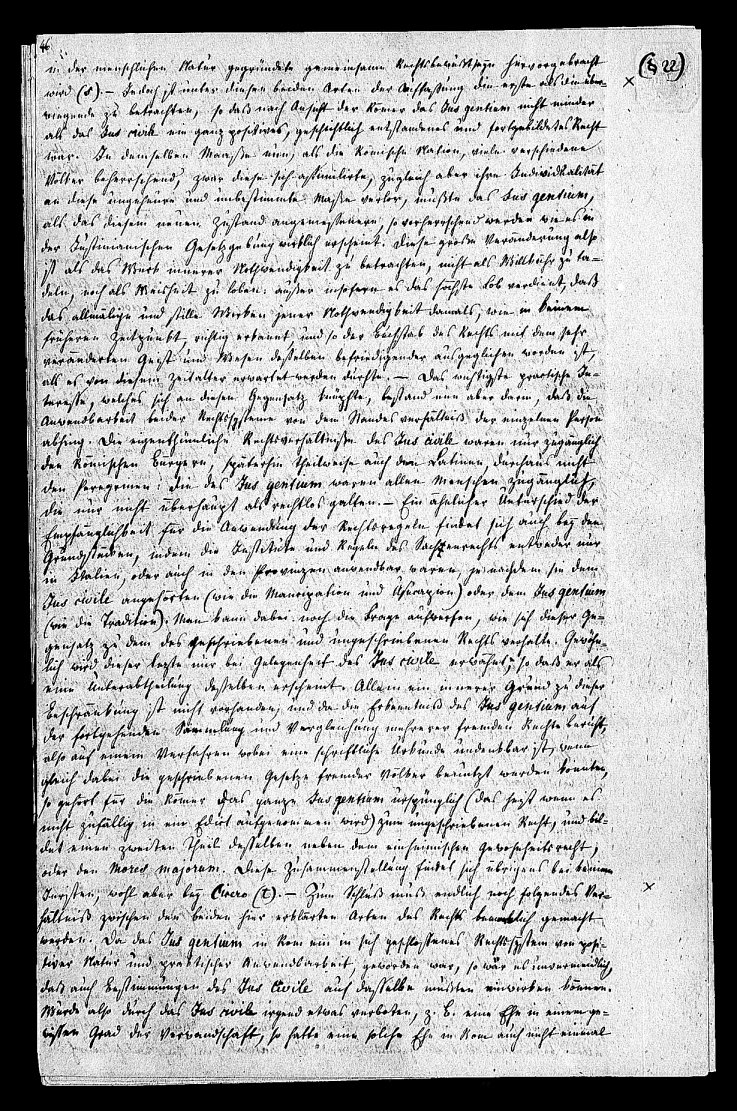 46
(§ 22)
in der menschlichen Natur gegründete gemeinsame Rechtsbewußtseyn hervorgebracht
wird (s). — Indeß ist unter diesen beiden Arten der Auffassung die erste als die über-
wiegende zu betrachten, so daß nach Ansicht der Römer das Jus gentium nicht minder
als das Jus civile ein ganz positives, geschichtlich entstandenes und fortgebildetes Recht
war. In demselben Maaße nun, als die Römische Nation, viele verschiedene
Völker beherrschend, zwar diese sich assimilirte, zugleich aber ihre Individualität
an diese ungeheure und unbestimmte Masse verlor, mußte das Jus gentium,
als das diesem neuen Zustand angemessenere, so vorherrschend werden wie es in
der Justinianischen Gesetzgebung wirklich erscheint. Diese große Veränderung also
ist als das Werk innerer Nothwendigkeit zu betrachten, nicht als Willkühr zu ta-
deln, noch als Weisheit zu loben: außer insofern es das höchste Lob verdient, daß
das allmälige und stille Wirken jener Nothwendigkeit damals, wie in keinem
früheren Zeitpunkt, richtig erkannt und so der Buchstab des Rechts mit dem sehr
veränderten Geist und Wesen desselben befriedigender ausgeglichen worden ist,
als es von diesem Zeitalter erwartet werden durfte. — Das wichtigste practische In-
teresse, welches sich an diesen Gegensatz knüpfte, bestand nun aber darin, daß die
Anwendbarkeit beider Rechtssysteme von dem Standesverhältniß der einzelnen Person
abhing. Die eigenthümliche Rechtsverhältnisse des Jus civile waren nur zugänglich
den Römischen Bürgern, späterhin theilweise auch den Latinen, durchaus nicht
den Peregrinen: die des Jus gentium waren allen Menschen zugänglich,
die nur nicht überhaupt als rechtlos galten. — Ein ähnlicher Unterschied der
Empfänglichkeit für die Anwendung der Rechtsregeln findet sich auch bey den
Grundstücken, indem die Institute und Regeln des Sachenrechts entweder nur
in Italien, oder auch in den Provinzen anwendbar waren, je nachdem sie dem
Jus civile angehörten (wie die Mancipation und Usucapion) oder dem Jus gentium
(wie die Tradition). Man kann dabei noch die Frage aufwerfen, wie sich dieser Ge-
gensatz zu dem des geschriebenen und ungeschriebenen Rechts verhalte. Gewöhn-
lich wird dieser letzte nur bei Gelegenheit des Jus civile erwähnt, so daß er als
eine Unterabtheilung desselben erscheint. Allein ein innerer Grund zu dieser
Beschränkung ist nicht vorhanden, und da die Erkenntniß des Jus gentium auf
der fortgehenden Sammlung und Vergleichung mehrerer fremden Rechte beruht,
also auf einem Verfahren wobei eine schriftliche Urkunde undenkbar ist, wenn
gleich dabei die geschriebenen Gesetze fremder Völker benutzt werden konnten,
so gehört für die Römer das ganze Jus gentium ursprünglich (das heißt wenn es
nicht zufällig in ein Edict aufgenommen wird) zum ungeschriebenen Recht, und bil-
det einen zweiten Theil desselben neben dem einheimischen Gewohnheitsrecht,
oder den Mores majorum. Diese Zusammenstellung findet sich übrigens bei keinem
Juristen, wohl aber bey Cicero (t). — Zum Schluß muß endlich noch folgendes Ver-
hältniß zwischen den beiden hier erklärten Arten des Rechts bemerklich gemacht
werden. Da das Jus gentium in Rom ein in sich geschlossenes Rechtssystem von posi-
tiver Natur und practischer Anwendbarkeit geworden war, so war es unvermeidlich,
daß auch Bestimmungen des Jus Civile auf dasselbe mußten einwirken können.
Wurde also durch das Jus civile irgend etwas verboten, z. B. eine Ehe in einem ge-
wissen Grad der Verwandschaft, so hatte eine solche Ehe in Rom auch nicht einmal